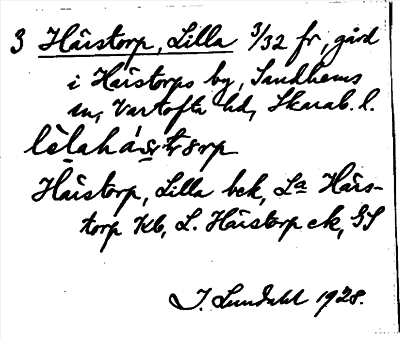 3 Härstorp, Lilla 3/32 fr, gård
i Härstorps by, Sandhems
sn, Vartofta hd, Skarab. l.
Härstorp, Lilla bek, La Härs-
torp Kb, L. Härstorp ek, GS
I. Lundahl 1928.